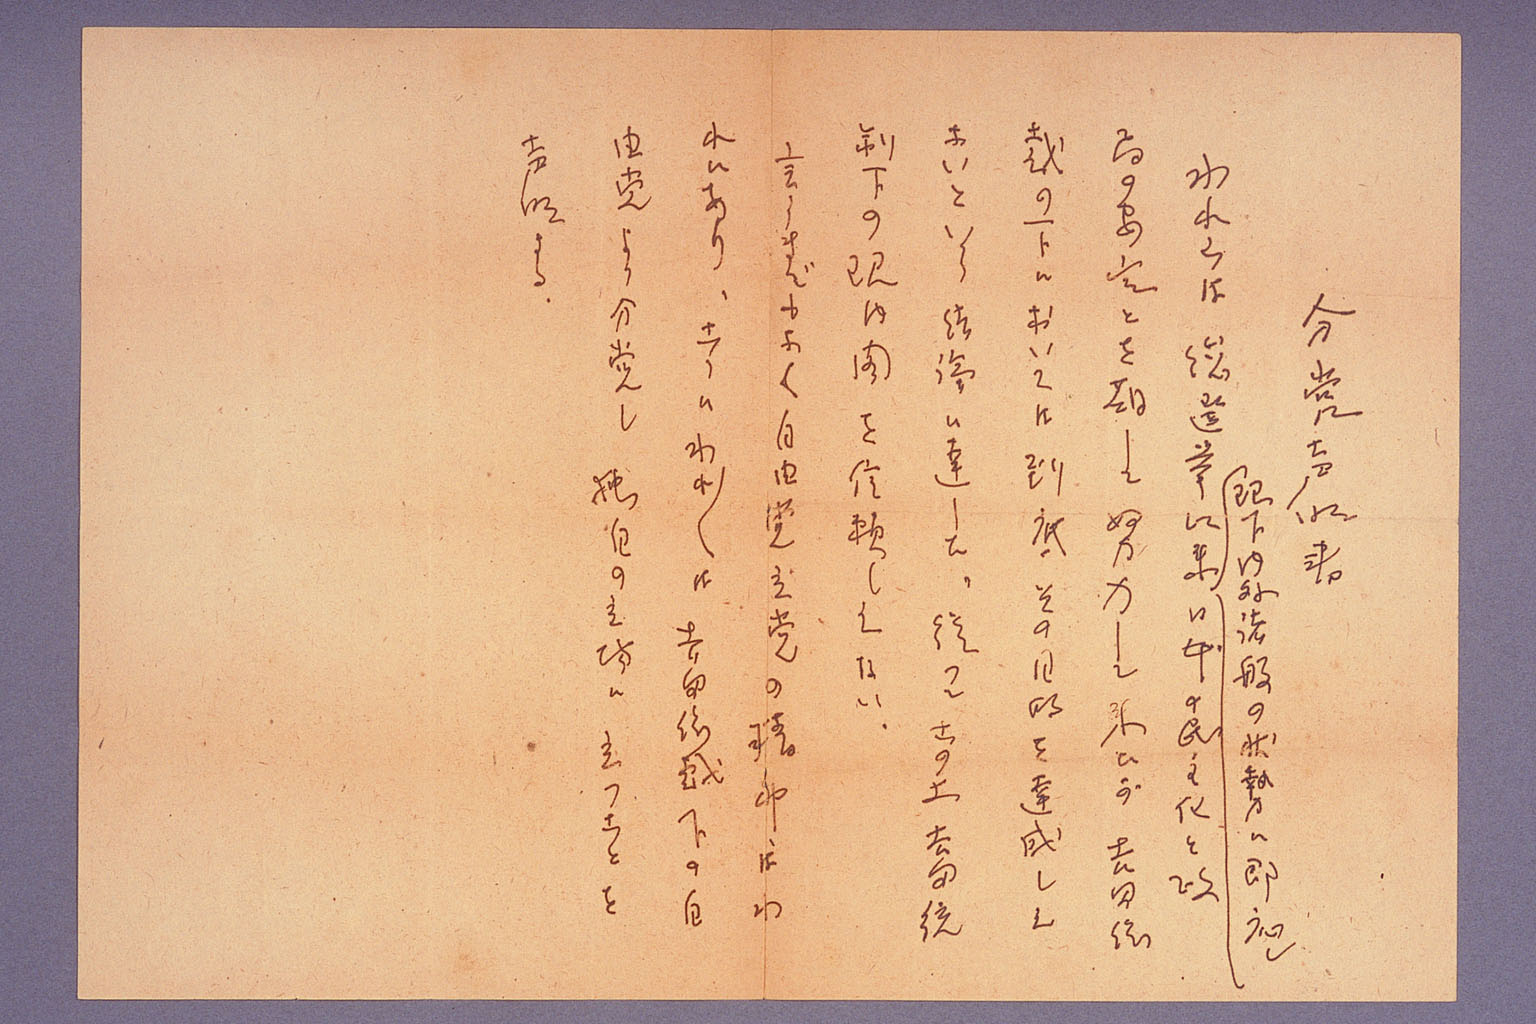 分党声明書
現下内外諸般の状勢に即応し
われらは総選挙以来日本の民主化と政
局の安定とを期して努力して来たが吉田総
裁の下においては到底その目的を達成しえ
ないという結論に達した、従つてこの上吉田統
制下の現内閣を信頼しえない.
言うまでもなく自由党立党の精神はわ
れにあり、ここにわれ〱は吉田総裁下の自
由党より分党し独自の立場に立つことを
声明する.